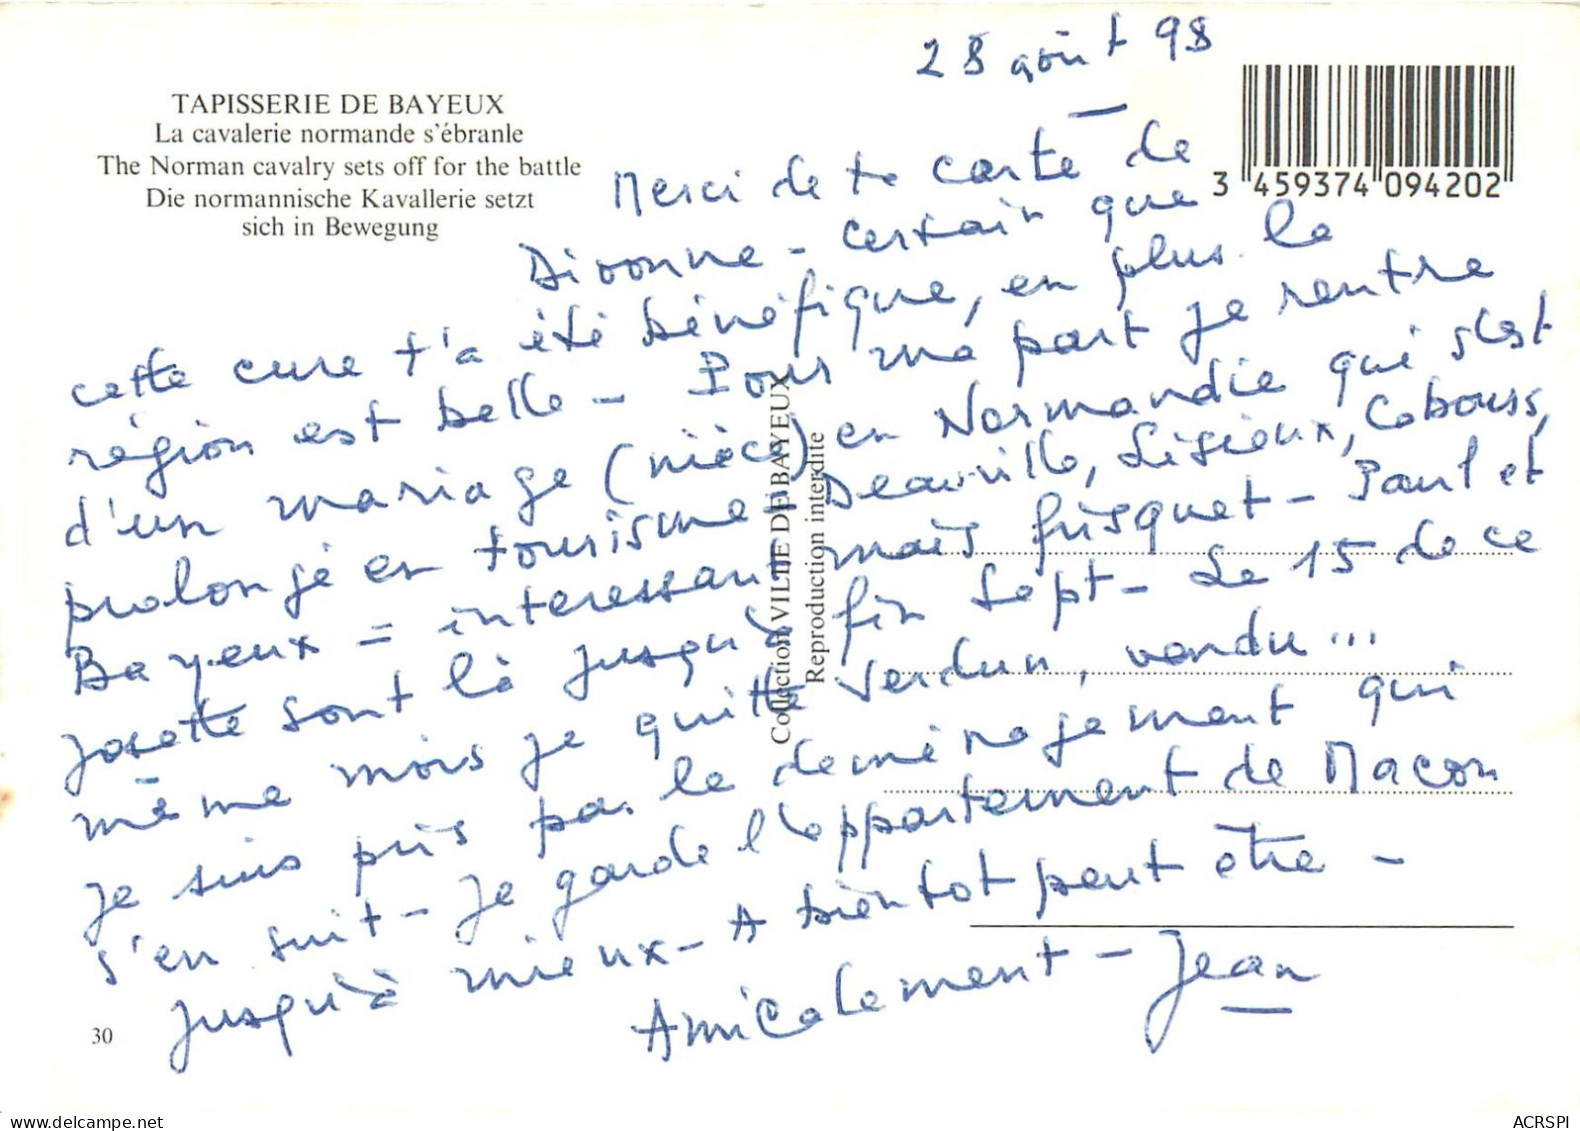 28 août 98
TAPISSERIE DE BAYEUX
La cavalerie normande s'ébranle
The Norman cavalry sets off for the battle
Die normannische Kavallerie setzt
sich in Bewegung
3 459374 094202
Merci de ta carte de
Divonne - certain que
cette cure t'a été bénéfique, en plus la
région est belle - Pour ma part je rentre
d'un mariage (nièce) en Normandie qui s'est
prolongé en tourisme = Deauville, Lisieux, Cabourg,
Bayeux = interessant mais frisquet - Paul et
Josette sont là jusqu'à fin Sept - Le 15 de ce
même mois je quitte Verdun, vendu...
je suis pris par le deménagement qui
s'en suit - je garde l'appartement de Macon
jusqu'à mieux - A bientot peut être -
Amicalement - Jean
Collection VILLE DE BAYEUX
Reproduction interdite
30
ACRSPI